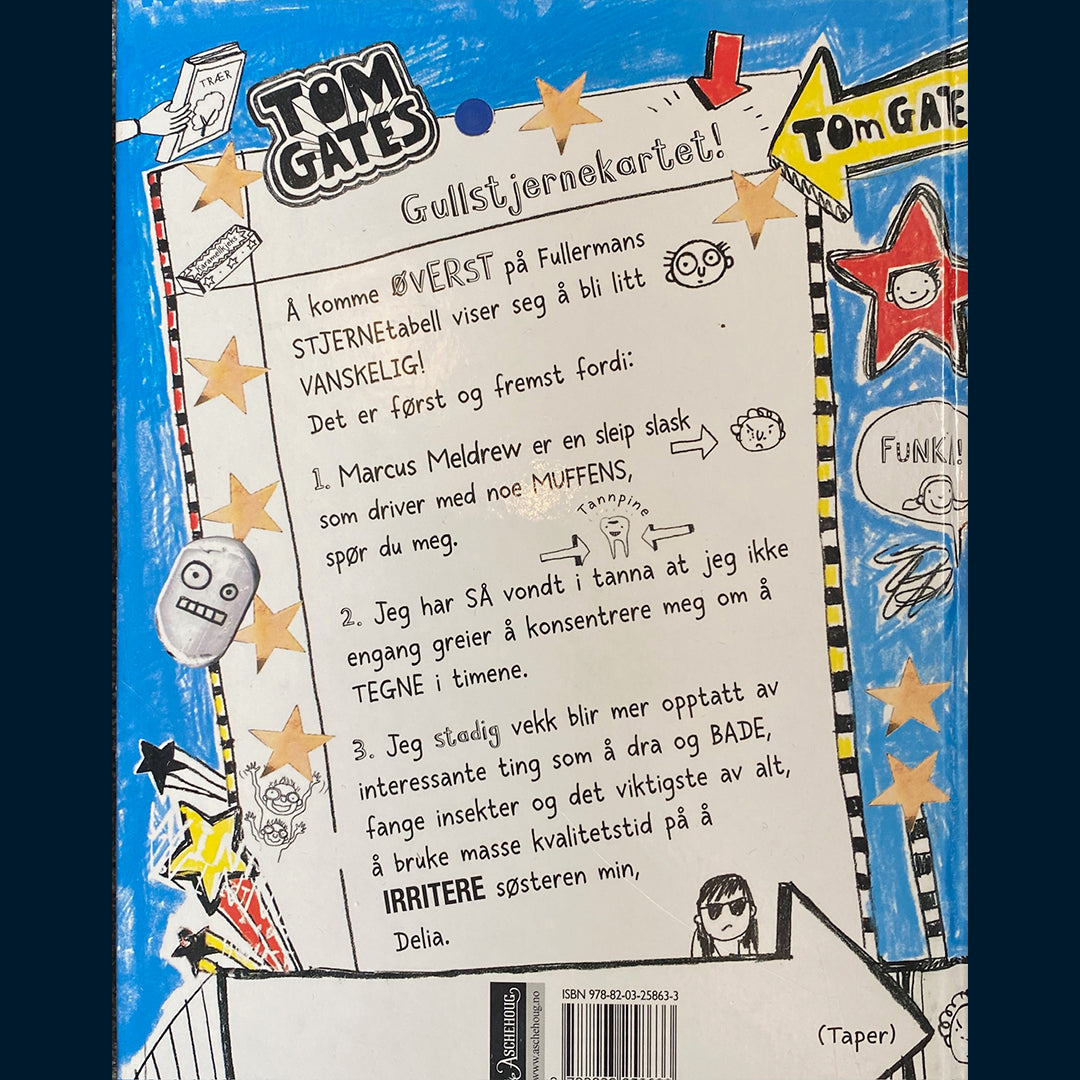 TRÆR
TOM
GATES
TOM GATE
Gullstjernekartet!
Karamellkjeks
Å komme ØVERST på Fullermans
STJERNEtabell viser seg å bli litt
VANSKELIG!
Det er først og fremst fordi:
1. Marcus Meldrew er en sleip slask
som driver med noe MUFFENS,
spør du meg.
FUNKA!
Tannpine
2. Jeg har SÅ vondt i tanna at jeg ikke
engang greier å konsentrere meg om å
TEGNE i timene.
3. Jeg stadig vekk blir mer opptatt av
interessante ting som å dra og BADE,
fange insekter og det viktigste av alt,
å bruke masse kvalitetstid på å
IRRITERE søsteren min,
Delia.
ASCHEHOUG
www.aschehoug.no
ISBN 978-82-03-25863-3
(Taper)